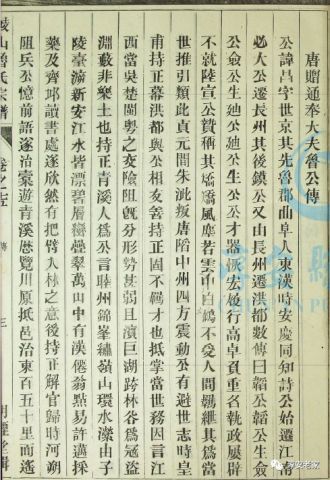 唐贈通奉大夫魯公傳
公諱昌字世京其先魯郡曲阜人東漢時安慶同知詩公始遷江南
必大公遂長州其後鏌公又由長州遷洪都數傳曰韜公韜公生僉
公僉公生廸公廸公生公公才器宏後行高卓負重名執政屢辟
不就陸宣公贊稱其矯矯風塵若雲中白鶴不受人間紲其為當
世推引類此貞元間朱泚叛唐陷中州四方震動公有避世志時皇
甫持正幕洪都與公相友善持正固不羈才也抵掌當世務因言江
西當吳楚閩粵之交險阻旣分形勢甚弱且濱巨湖跨林谷為冦盜
淵藪非樂土也持正青溪人為公言睦州錦峯繡嶺山環水瀠由子
陵臺泝新安江水皆漂碧層巒疊翠萬山中有漢僊翁點易許邁採
藥及齊邙讀書處遂欣然有把臂入林之意後持正解官歸時河朔
阻兵公憶前語遂治裝遊青溪歷覽川原抵邑治東百五十里而遙
山魯氏宗譜
卷之五
傳
三